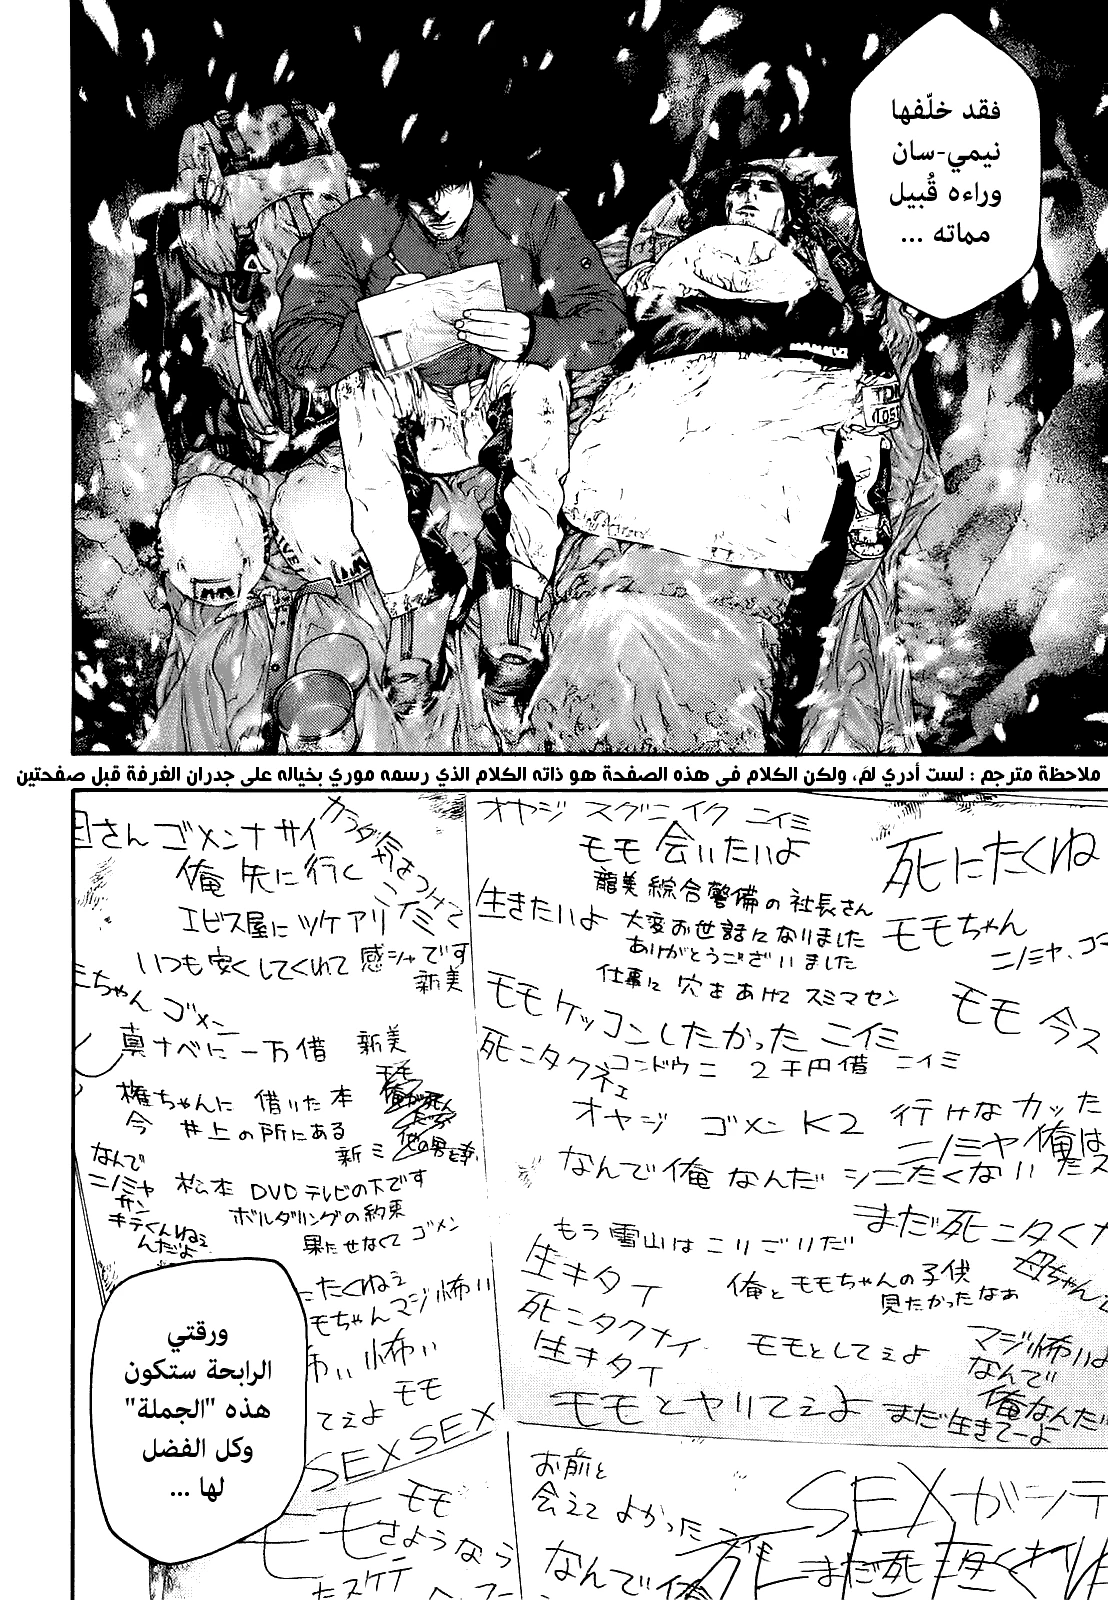 فقد خلّفها
نيمي-سان
وراءه قُبيل
مماته ...
ملاحظة مترجم : لست أدري لمَ، ولكن الكلام في هذه الصفحة هو ذاته الكلام الذي رسمه موري بخياله على جدران الغرفة قبل صفحتين
死にたくね
モモちゃん
ニノミヤ、ゴ
モモ 今ス
オヤジ スグニイク ニイミ
モモ 会いたいよ
龍美綜合警備の社長さん
生きたいよ 大変お世話になりました
ありがとうございました
仕事に穴をあけて スミマセン
モモ ケッコンしたかった ニイミ
死ニタクネェ
コンドウニ 2千円借 ニイミ
オヤジ ゴメン K2 行けなカッた
ニノミヤ 俺は
なんで俺なんだ シニたくない
まだ死ニタくナ
もう雪山はこりごりだ
生キタイ
俺とモモちゃんの子供
見たかったなぁ
母ちゃん
死ニタクナイ
生キタイ
モモとしてぇよ
マジ怖いよ
なんで
俺なんだ
モモとヤリてぇよ
まだ生きてーよ
さん ゴメンナサイ
カラダ気をつけて
俺 先に行く ニイミ
エビス屋に ツケアリ
いつも安くしてくれて 感シャです
新美
ちゃん ゴメン
真ナベに 一万借 新美
モモ
権ちゃんに 借りた本
今 井上の所にある
新ミ
なんで
ニノミヤ
サン
キテくんねぇ
んだよ
松本 DVDテレビの下です
ボルダリングの約束
果たせなくて ゴメン
たくねぇ
モちゃん マジ怖い
怖い 怖い
モモ
てぇよ
SEX SEX
モモ
モモ
さようなら
たスケテ
お前と
会えて よかった
なんで俺
SEXがシテ
まだ死
ورقتي
الرابحة ستكون
هذه "الجملة"
وكل الفضل
لها ...